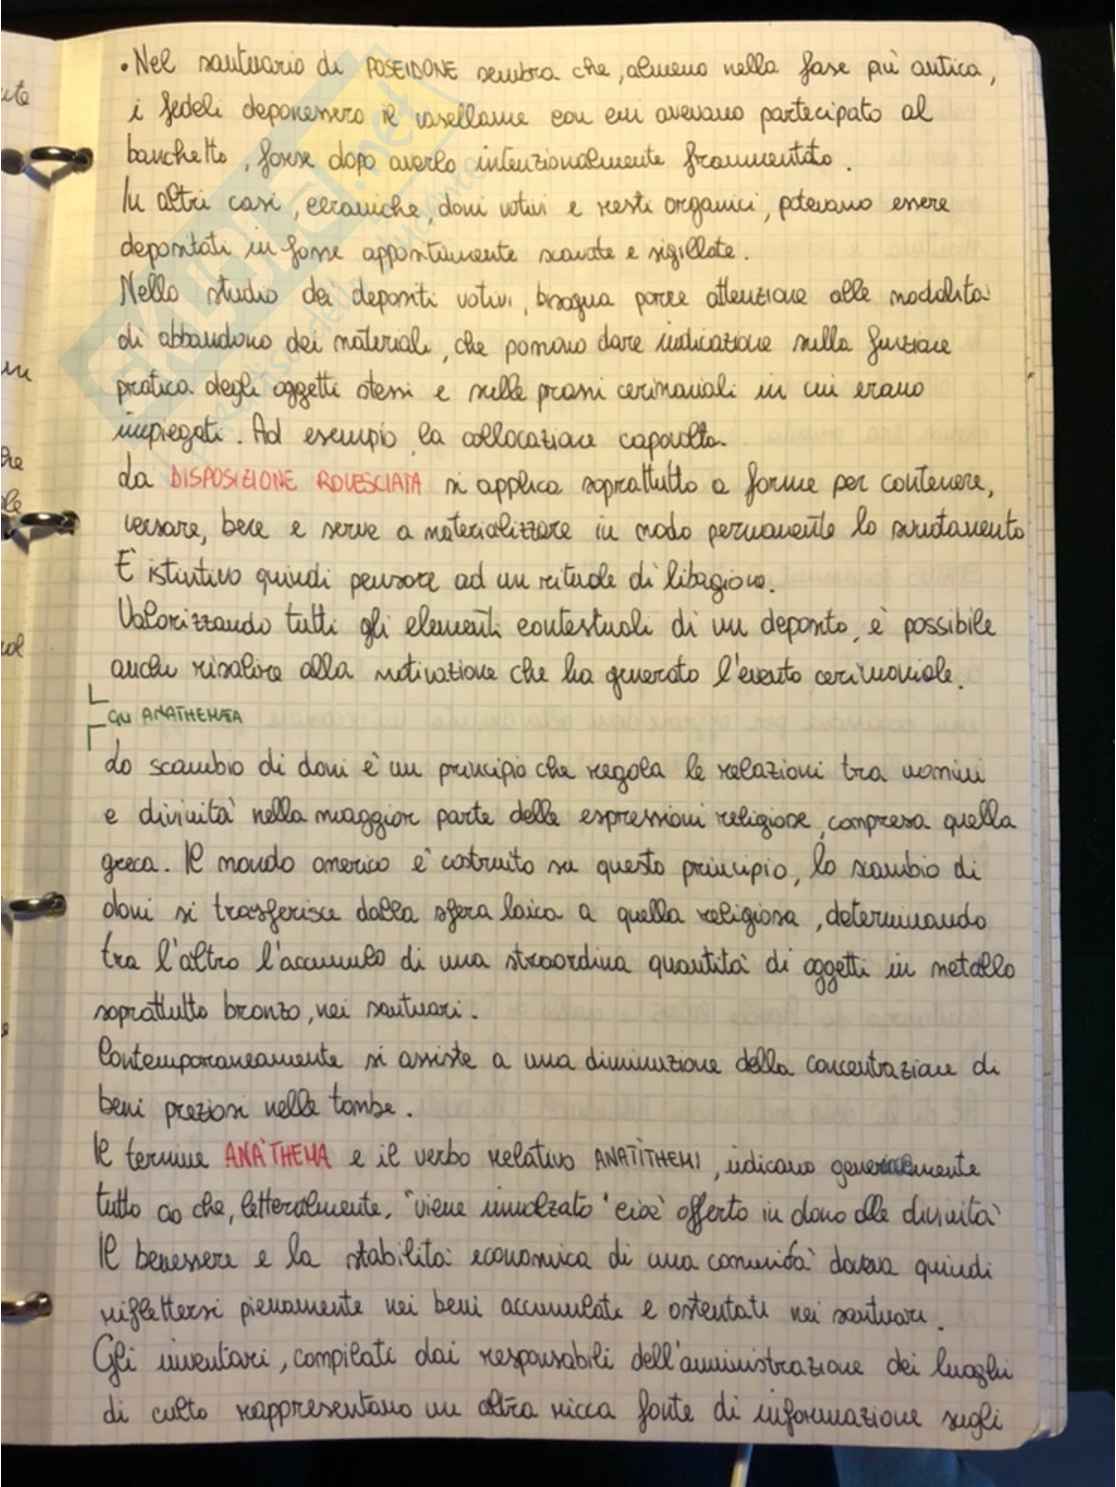 • Nel santuario di POSEIDONE sembra che, almeno nella fase più antica,
i fedeli deponessero il vasellame con cui avevano partecipato al
banchetto, forse dopo averlo intenzionalmente frammentato.
In altri casi, ceramiche, doni votivi e resti organici, potevano essere
depositati in fosse appositamente scavate e sigillate.
Nello studio dei depositi votivi, bisogna porre attenzione alle modalità
di abbandono dei materiali, che possono dare indicazione sulla funzione
pratica degli oggetti stessi e sulle prassi cerimoniali in cui erano
impiegati. Ad esempio la collocazione capovolta.
La DISPOSIZIONE ROVESCIATA si applica soprattutto a forme per contenere,
versare, bere e serve a materializzare in modo permanente lo svuotamento
È istintivo quindi pensare ad un rituale di libagione.
Valorizzando tutti gli elementi contestuali di un deposito, è possibile
anche risalire alla motivazione che ha generato l'evento cerimoniale.
GLI ANATHEMATA
Lo scambio di doni è un principio che regola le relazioni tra uomini
e divinità nella maggior parte delle espressioni religiose, compresa quella
greca. Il mondo omerico è costruito su questo principio, lo scambio di
doni si trasferisce dalla sfera laica a quella religiosa, determinando
tra l'altro l'accumulo di una straordina quantità di oggetti in metallo
soprattutto bronzo, nei santuari.
Contemporaneamente si assiste a una diminuzione della concentrazione di
beni preziosi nelle tombe.
Il termine ANÀTHEMA e il verbo relativo ANATÌTHEMI, indicano generalmente
tutto ciò che, letteralmente, "viene innalzato" cioè offerto in dono alle divinità
Il benessere e la stabilità economica di una comunità doveva quindi
riflettersi pienamente nei beni accumulati e ostentati nei santuari.
Gli inventari, compilati dai responsabili dell'amministrazione dei luoghi
di culto rappresentano un altra ricca fonte di informazione sugli